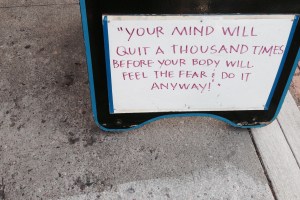 "YOUR MIND WILL
QUIT A THOUSAND TIMES
BEFORE YOUR BODY WILL
FEEL THE FEAR & DO IT
ANYWAY!"